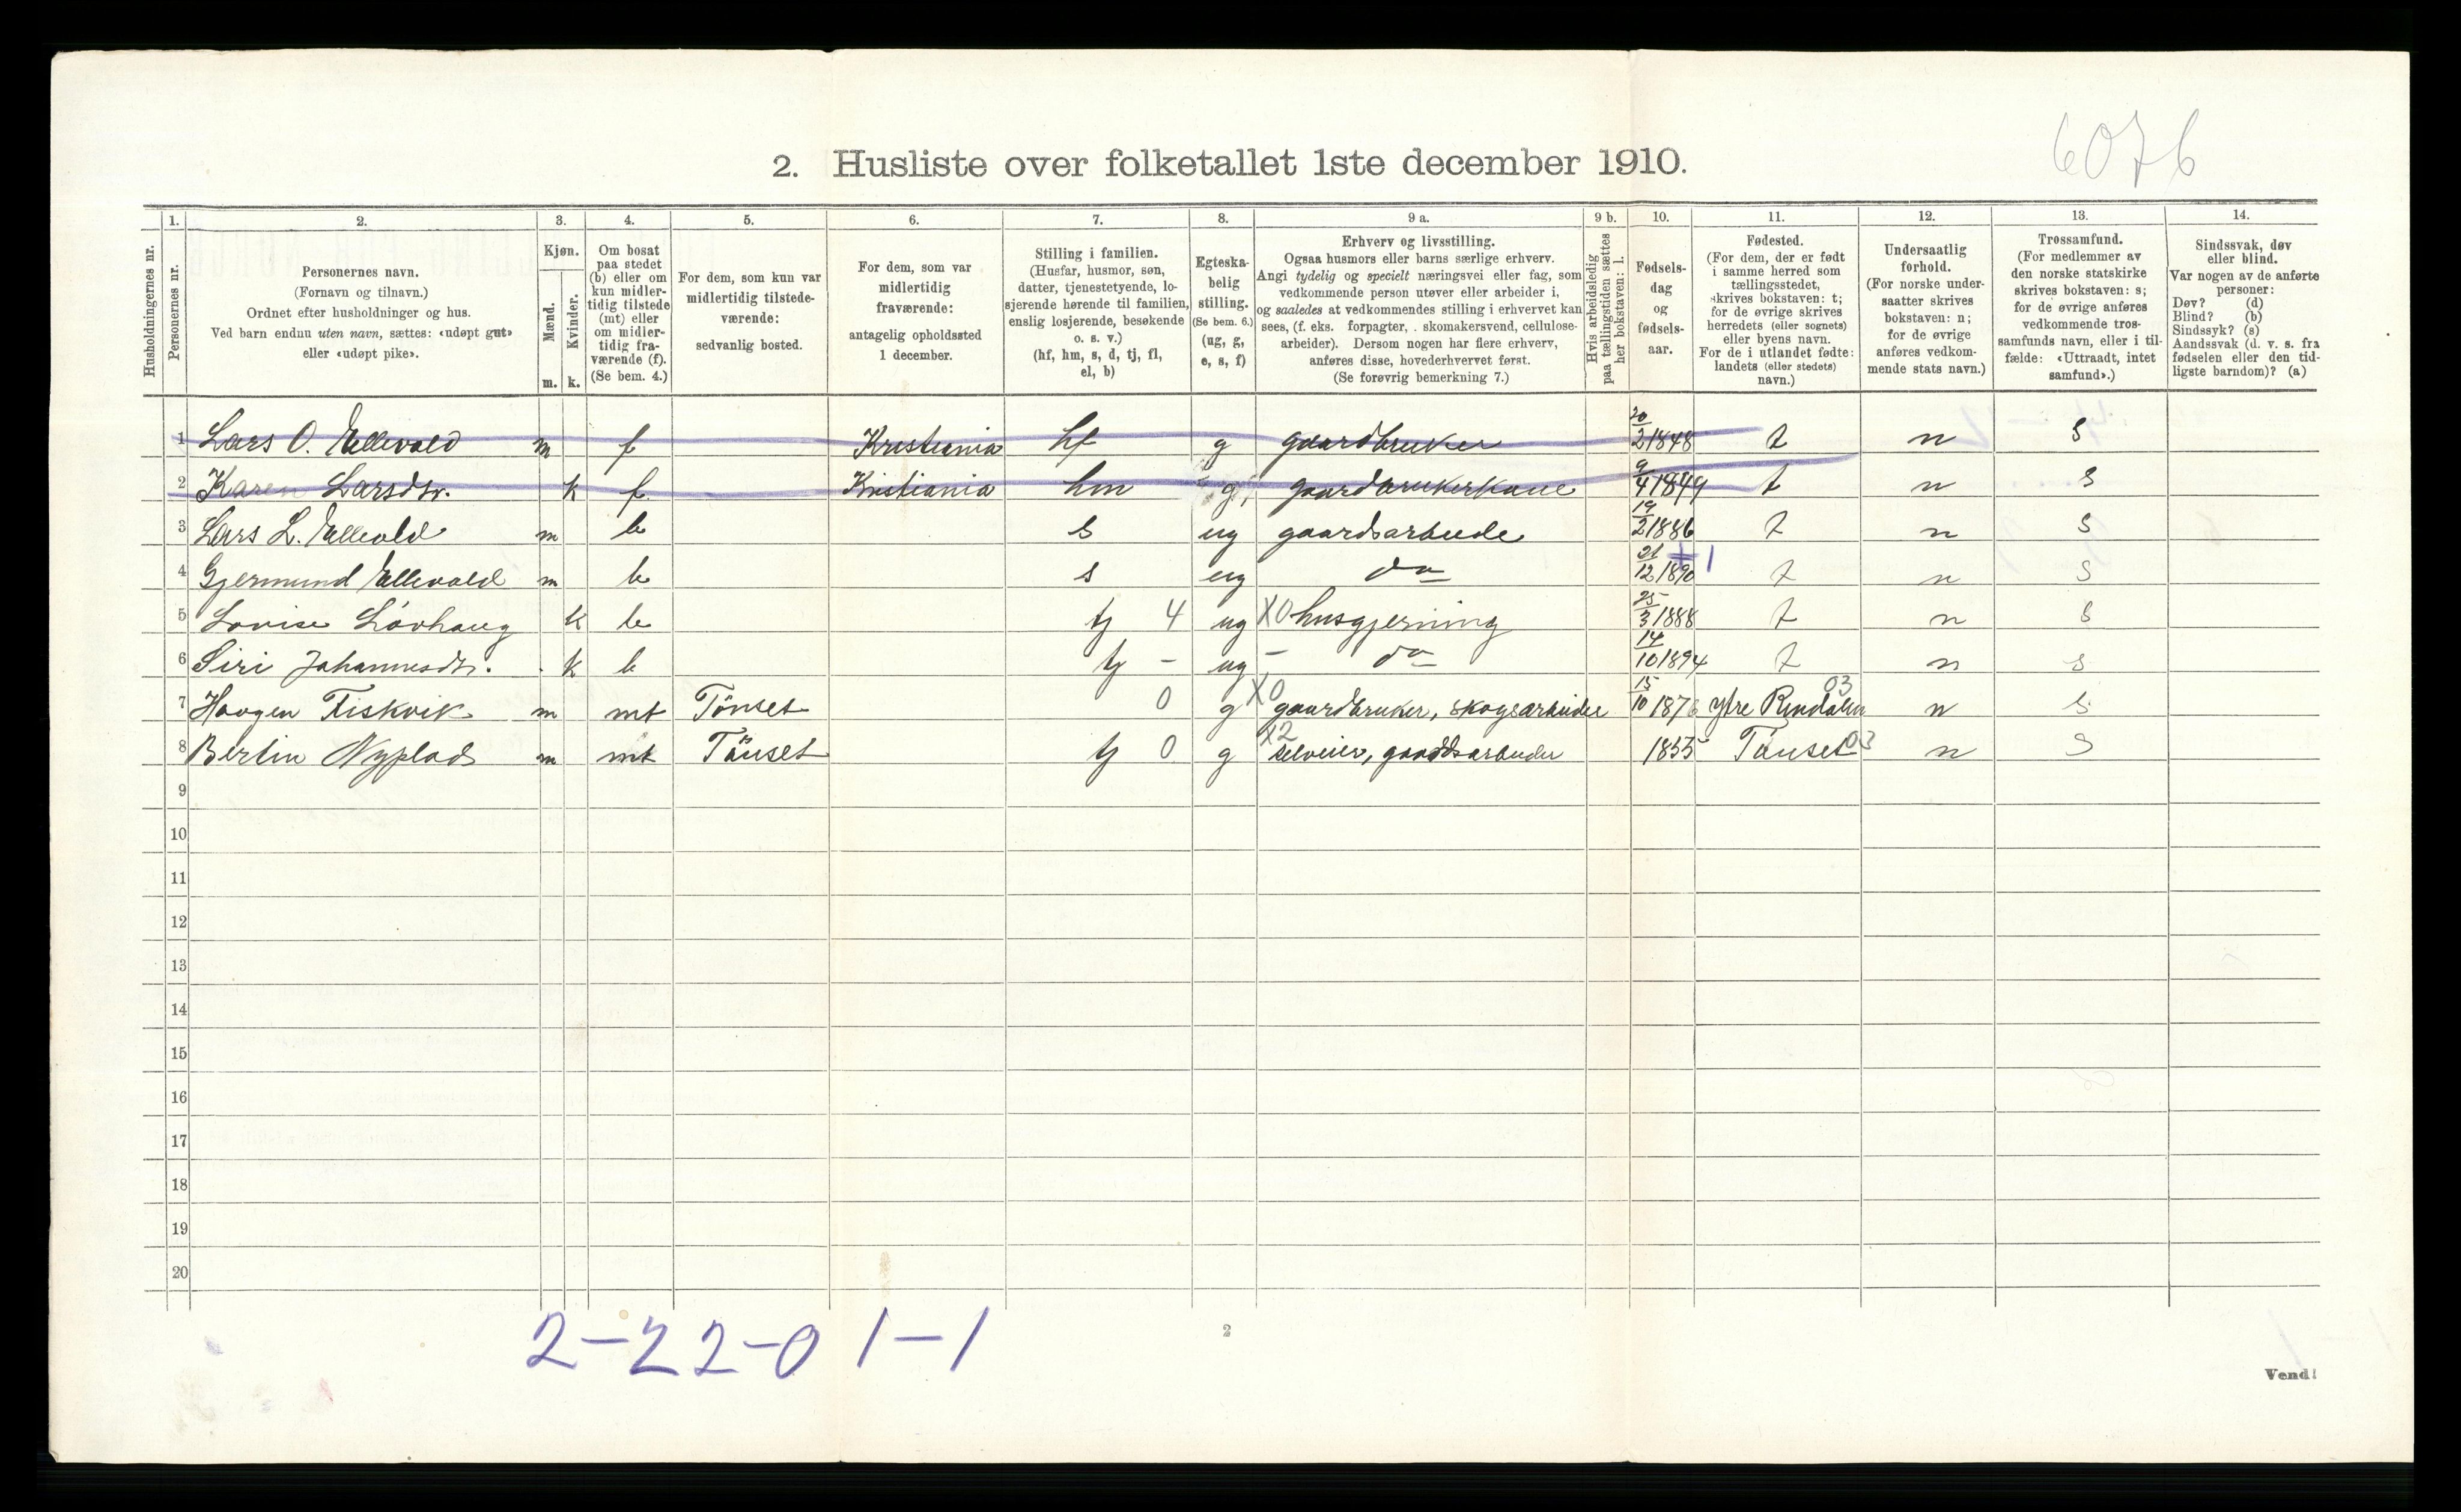 6076
2. Husliste over folketallet 1ste december 1910.
1. 2. 3. 4. 5. 6. 7. 8. 9 a. 9 b. 10. 11. 12. 13. 14.
Husholdningernes nr.
Personernes nr.
Personernes navn.
(Fornavn og tilnavn.)
Ordnet efter husholdninger og hus.
Ved barn endnu uten navn, sættes: «udøpt gut»
eller «udøpt pike».
Kjøn.
Mænd.
Kvinder.
m. k.
Om bosat
paa stedet
(b) eller om
kun midler-
tidig tilstede
(mt) eller
om midler-
tidig fra-
værende (f).
(Se bem. 4.)
For dem, som kun var
midlertidig tilstede-
værende:
sedvanlig bosted.
For dem, som var
midlertidig
fraværende:
antagelig opholdssted
1 december.
Stilling i familien.
(Husfar, husmor, søn,
datter, tjenestetyende, lo-
sjerende hørende til familien,
enslig losjerende, besøkende
o. s. v.)
(hf, hm, s, d, tj, fl,
el, b)
Egteska-
belig
stilling.
(Se bem. 6.)
(ug, g,
e, s, f)
Erhverv og livsstilling.
Ogsaa husmors eller barns særlige erhverv.
Angi tydelig og specielt næringsvei eller fag, som
vedkommende person utøver eller arbeider i,
og saaledes at vedkommendes stilling i erhvervet kan
sees, (f. eks. forpagter, skomakersvend, cellulose-
arbeider). Dersom nogen har flere erhverv,
anføres disse, hovederhvervet først.
(Se forøvrig bemerkning 7.)
Hvis arbeidsledig
paa tællingstiden sættes
her bokstaven: l.
Fødsels-
dag
og
fødsels-
aar.
Fødested.
(For dem, der er født
i samme herred som
tællingsstedet,
skrives bokstaven: t;
for de øvrige skrives
herredets (eller sognets)
eller byens navn.
For de i utlandet fødte:
landets (eller stedets)
navn.)
Undersaatlig
forhold.
(For norske under-
saatter skrives
bokstaven: n;
for de øvrige
anføres vedkom-
mende stats navn.)
Trossamfund.
(For medlemmer av
den norske statskirke
skrives bokstaven: s;
for de øvrige anføres
vedkommende tros-
samfunds navn, eller i til-
fælde: «Uttraadt, intet
samfund».)
Sindssvak, døv
eller blind.
Var nogen av de anførte
personer:
Døv? (d)
Blind? (b)
Sindssyk? (s)
Aandssvak (d. v. s. fra
fødselen eller den tid-
ligste barndom)? (a)
1 Lars O. Ellevold m f Kristiania hf g gaardbruker 20/2 1848 t n s
2 Karen Larsdtr. k f Kristiania hm g gaardbrukerkone 9/4 1849 t n s
3 Lars L. Ellevold m b s ug gaardsarbeide 19/2 1886 t n s
4 Gjermund Ellevold m b s ug do 21/12 1890 +1 t n s
5 Lovise Lövhaug k b tj 4 ug X0 husgjerning 25/3 1888 t n s
6 Siri Johannesdtr. k b tj - ug - do 14/10 1894 t n s
7 Haagen Fiskvik m mt Tönset 0 g X0 gaardbruker, skogsarbeider 15/10 1876 Ytre Rendalen 03 n s
8 Bertin Nyplads m mt Tönset tj 0 g X2 selveier, gaardsarbeider 1855 Tönset 03 n s
9
10
11
12
13
14
15
16
17
18
19
20
2-2 2-0 1-1
2
Vend!